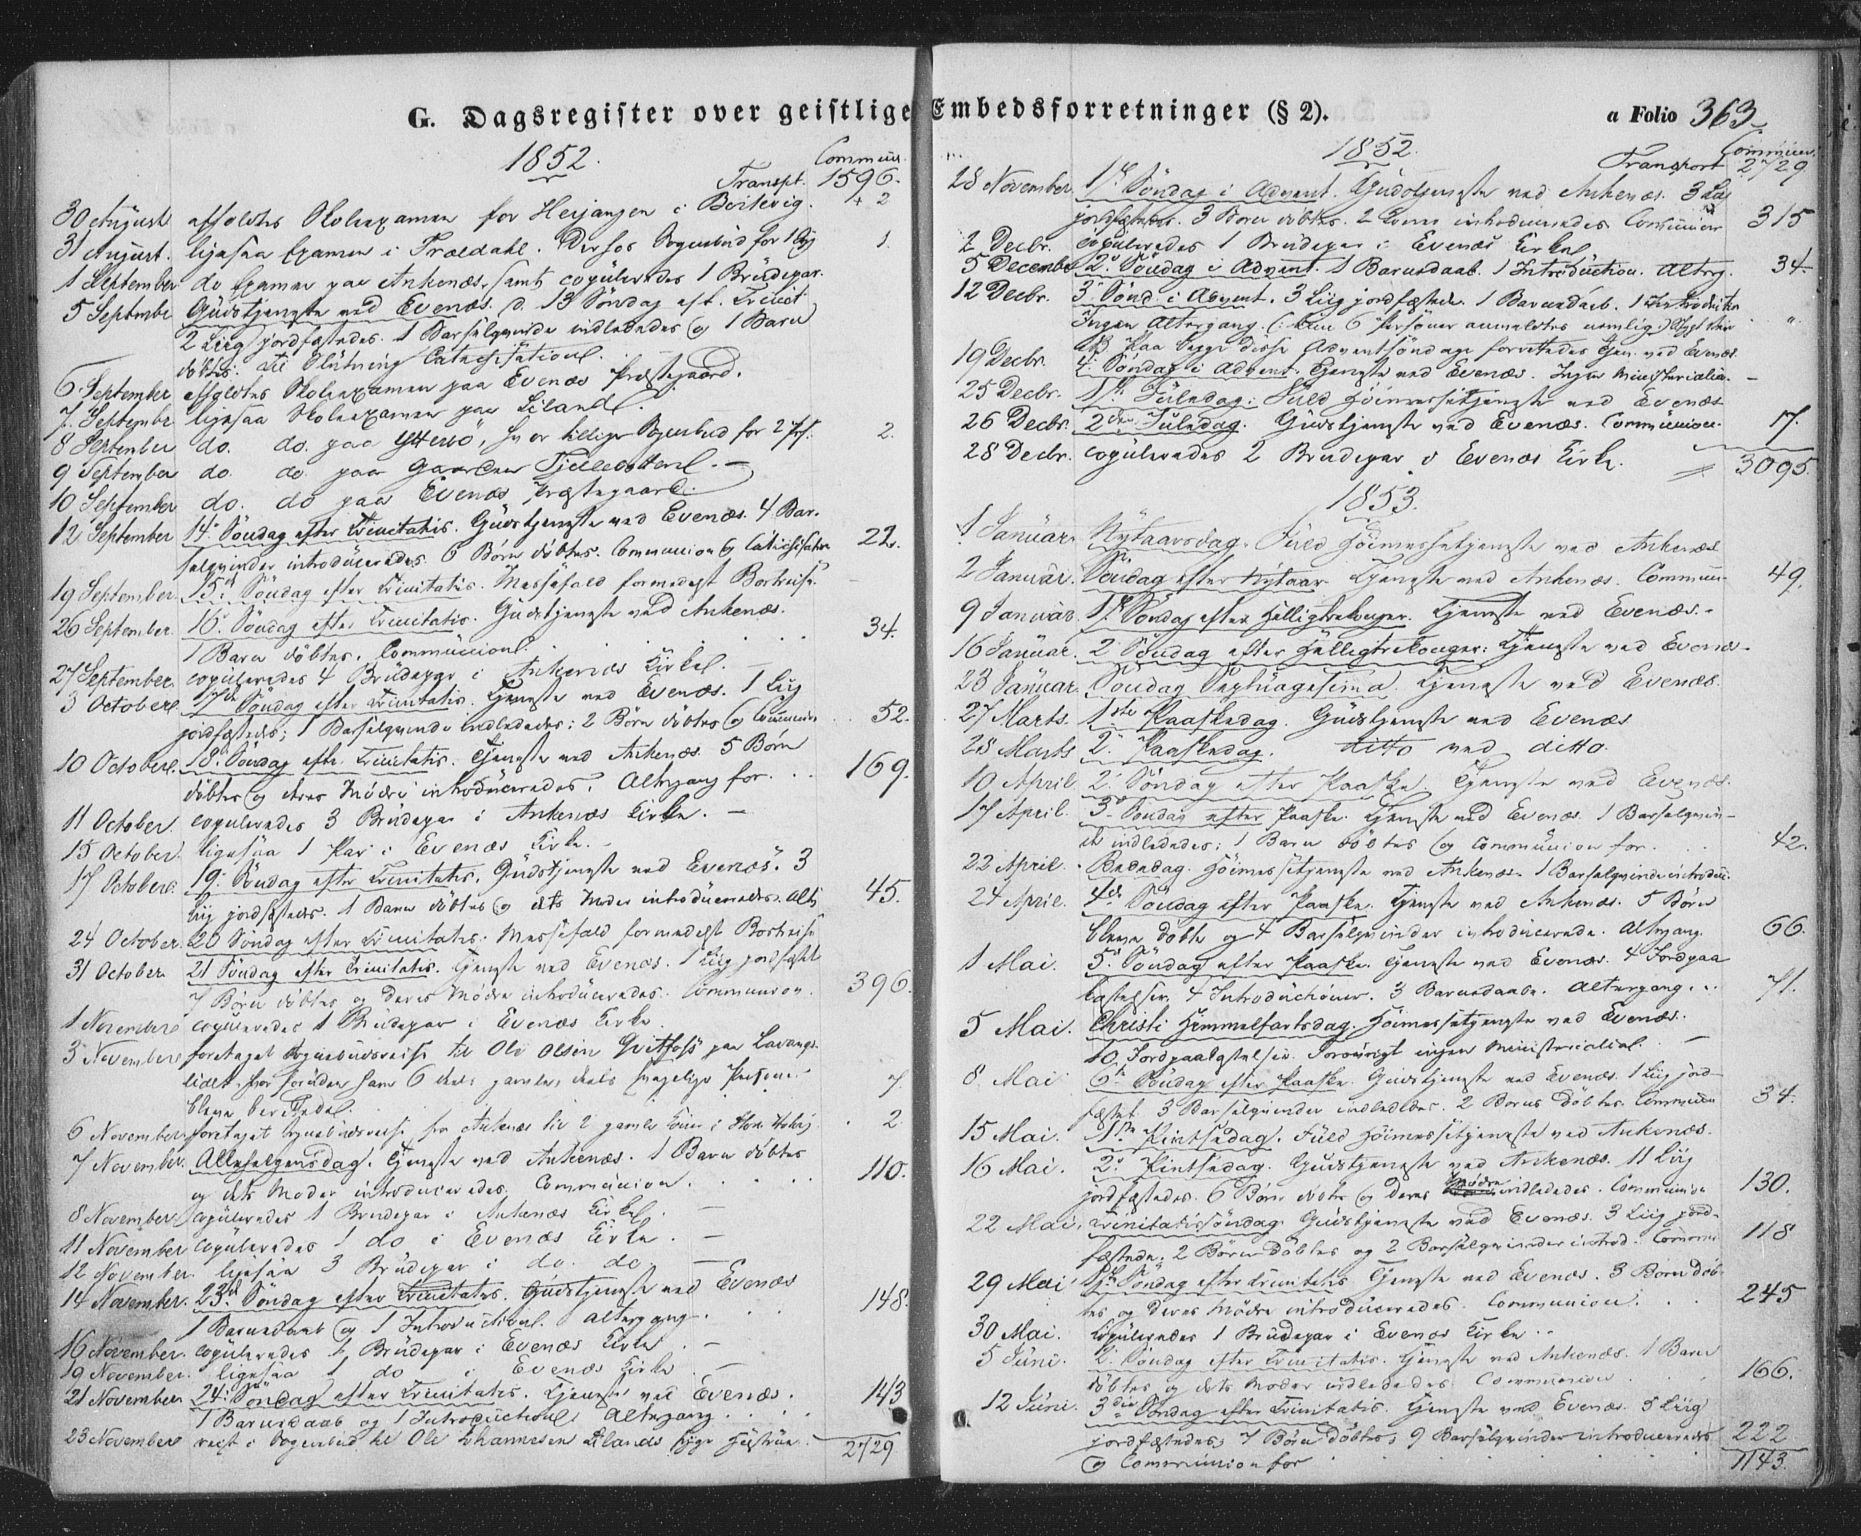 G. Dagsregister over geistlige Embedsforretninger (§ 2).
a Folio 363.
1852. Commun.
Transpt. 1596.
30 August afholdtes Skoleexamen for Herjangen i Beitevig. + 2
31 August. ligesaa Examen i Trældahl. Derhos Sognebud for 1 1.
1 September do Examen paa Ankenæs, samt copuleredes 1 Brudepar.
5 Septembr Gudstjeneste ved Evenæs. D. 13 Søndag eft. Trinit
2 Liig jordfæstedes. 1 Barselqvinde indlededes og 1 Barn
døbtes. Til Slutning Catechisation.
6. September afholdtes Skoleexamen paa Evenæs Præstegaard.
7. Septembr ligesaa Skoleexamen paa Liland.
8 September do. do. paa Ytterø, hvor tillige Sognebud for 2 2.
9 September do. do paa Gaarden
10 September do. do paa Evenæs Præstegaard.
12 September 14. Søndag efter Trinitatis. Gudstjeneste ved Evenæs. 4 Bar-
selqvinder introduceredes 6 Børn døbtes. Communion og Catechisation 22.
19 September. 15d Søndag efter Trinitatis. Messefald formedelst Bortreise.
26 September. 16. Søndag efter Trinitatis. Gudstjeneste ved Ankenæs.
1 Barn døbtes. Communion. 34.
27 September. copuleredes 4 Brudepar i Ankenæs Kirke.
3 October. 17de Søndag efter Trinitatis. Tjeneste ved Evenæs. 1 Liig
jordfæstedes; 1 Barselqvinde indlededes; 2 Børn døbtes og Communion 52.
10 October. 18. Søndag eftr Trinitatis. Tjeneste ved Ankenæs. 5 Børn
døbtes og deres Mødre introduceredes. Altergang for. 169.
11 October. copuleredes 3 Brudepar i Ankenæs Kirke. —
15 October. ligesaa 1 Par i Evenæs Kirke. —
17 October. 19. Søndag efter Trinitatis. Gudstjeneste ved Evenæs. 3
Liig jordfæstedes. 1 Barn døbtes og dets Moder introduceredes. Altg 45.
24 October. 20 Søndag efter Trinitatis. Messefald formedelst Bortreise
31 October 21 Søndag efter Trinitatis. Tjeneste ved Evenæs. 1 Liig jordfæstet
7 Børn døbtes og deres Mødre introduceredes. Communion. 396.
1 November copuleredes 1 Brudepar i Evenæs Kirke.
3 November foretaget Sognebudsreise til Ole Olsen Hvitfoss paa Lavangs-
lidet, hvor foruden ham 6 deels gamle, deels svagelige Personer
bleve berettede. 7
6 November. foretaget Sognebudsreise fra Ankenæs til 2 gamle 2.
7 November. Allehelgensdag. Tjeneste ved Ankenæs. 1 Barn døbtes
og dets Moder introduceredes. Communion. 110.
8 November copuleredes 1 Brudepar i Ankenæs Kirke. —
11 November copuleredes 1 do i Evenæs Kirke. —
12 November. ligesaa 3 Brudepar i do. do —
14 November. 23d. Søndag efter Trinitatis. Gudstjeneste ved Evenæs
1 Barnedaab og 1 Introduction. Altergang. 148.
16 November. copuleredes 1 Brudepar i Evenæs Kirke. —
19 November. ligesaa 1 do i Evenæs Kirke —
21 November. 24. Søndag efter Trinitatis. Tjeneste ved Evenæs.
1 Barnedaab og 1 Introduction. Altergang 143
23 November reist i Sognebud til Ole Johannesen Lilands syge Hustrue.
2729
1852. Commun.
Transport 2729
28 November. 1ste Søndag i Advent. Gudstjeneste ved Ankenæs. 3 Liig
jordfæstedes. 3 Børn døbtes. 2 Koner introduceredes Communion 315
2 Decbr. copuleredes 1 Brudepar i Evenæs Kirke
5 Decembr 2. Søndag i Advent. 1 Barnedaab. 1 Introduction. Altrg. 34.
12 Decbr. 3. Sønd i Advent. 3 Liig jordfæstede. 1 Barnedaab. 1 Introduktion
Ingen Altergang. (: kun 6 Personer anmeldtes nemlig:)
Paa begge disse Adventsøndage forrettedes Tjen. ved Evenæs.
19 Decbr. 4. Søndag i Advent. Tjeneste ved Evenæs. Ingen Ministerialia. —
25 Decbr. 1ste Juledag. Fuld Høimessetjeneste ved Evenæs
26 Decbr. 2den Juledag. Gudstjeneste ved Evenæs. Communion. 17.
28 Decbr. copuleredes 2 Brudepar i Evenæs Kirke. 3095.
1853.
1 Januar. Nytaarsdag. Fuld Høimessetjeneste ved Ankenæs
2 Januar. Søndag efter Nytaar Tjeneste ved Ankenæs. Commun- 49.
9 Januar. 1ste Søndag efter Helligtrekonger. Tjeneste ved Evenæs. -
16 Januar. 2 Søndag efter Helligtrekonger: Tjeneste ved Evenæs -
23 Januar. Søndag Septuagesima. Tjeneste ved Evenæs.
27 Marts. 1ste Paaskedag. Gudstjeneste ved Evenæs
28 Marts 2. Paaskedag. ditto ved ditto.
10 April. 2. Søndag efter Paaske. Tjeneste ved Evenæs.
17 April. 3. Søndag efter Paaske. Tjeneste ved Evenæs. 1 Barselqvin-
de indlededes; 1 Barn døbtes og Communion for. 42.
22 April. Bededag. Høimessetjeneste ved Ankenæs. 1 Barselqvinde introduc.
24 April. 4de Søndag efter Paaske. Tjeneste ved Ankenæs. 5 Børn
bleve døbte og 4 Barselqvinder introducerede. Altergang. 66.
1 Mai. 5. Søndag efter Paaske. Tjeneste ved Evenæs. 4 Jordpaa-
kastelser. 4 Introductioner. 3 Barnedaabe. Altergang. 71.
5 Mai. Christi Himmelfartsdag. Høimessetjeneste ved Evenæs.
10 Jordpaakastelser. Forøvrigt ingen Ministerialia. —
8. Mai 6te Søndag efter Paaske. Gudstjeneste ved Evenæs. 1 Liig jord-
fæstet. 3 Barselqvinder indlededes. 2 Børn døbtes. Communion 34.
15 Mai. 1ste Pintsedag. Fuld Høimessetjeneste ved Ankenæs.
16 Mai. 2. Pintsedag. Gudstjeneste ved Ankenæs. 11 Liig
jordfæstedes. 6 Børn døbte og deres Mødre indlededes. Communion 130.
22 Mai. Trinitatissøndag. Gudstjeneste ved Evenæs. 3 Liig jord-
fæstede. 2 Børn døbtes og 2 Barselqvinder introd. Commun 118
29 Mai 1ste Søndag efter Trinitatis Tjeneste ved Evenæs. 3 Børn døb-
tes og deres Mødre introduceredes. Communion. 245
30 Mai. Copuleredes 1 Brudepar i Evenæs Kirke.
5 Juni. 2. Søndag efter Trinitatis. Tjeneste ved Ankenæs. 1 Barn
døbtes og dets Moder indlededes. Communion 166.
12 Juni. 3die Søndag efter Trinitatis. Tjeneste ved Evenæs. 5 Liig
jordfæstedes; 7 Børn døbtes; 9 Barselqvinder introduceredes 222
og Communion for 1143.